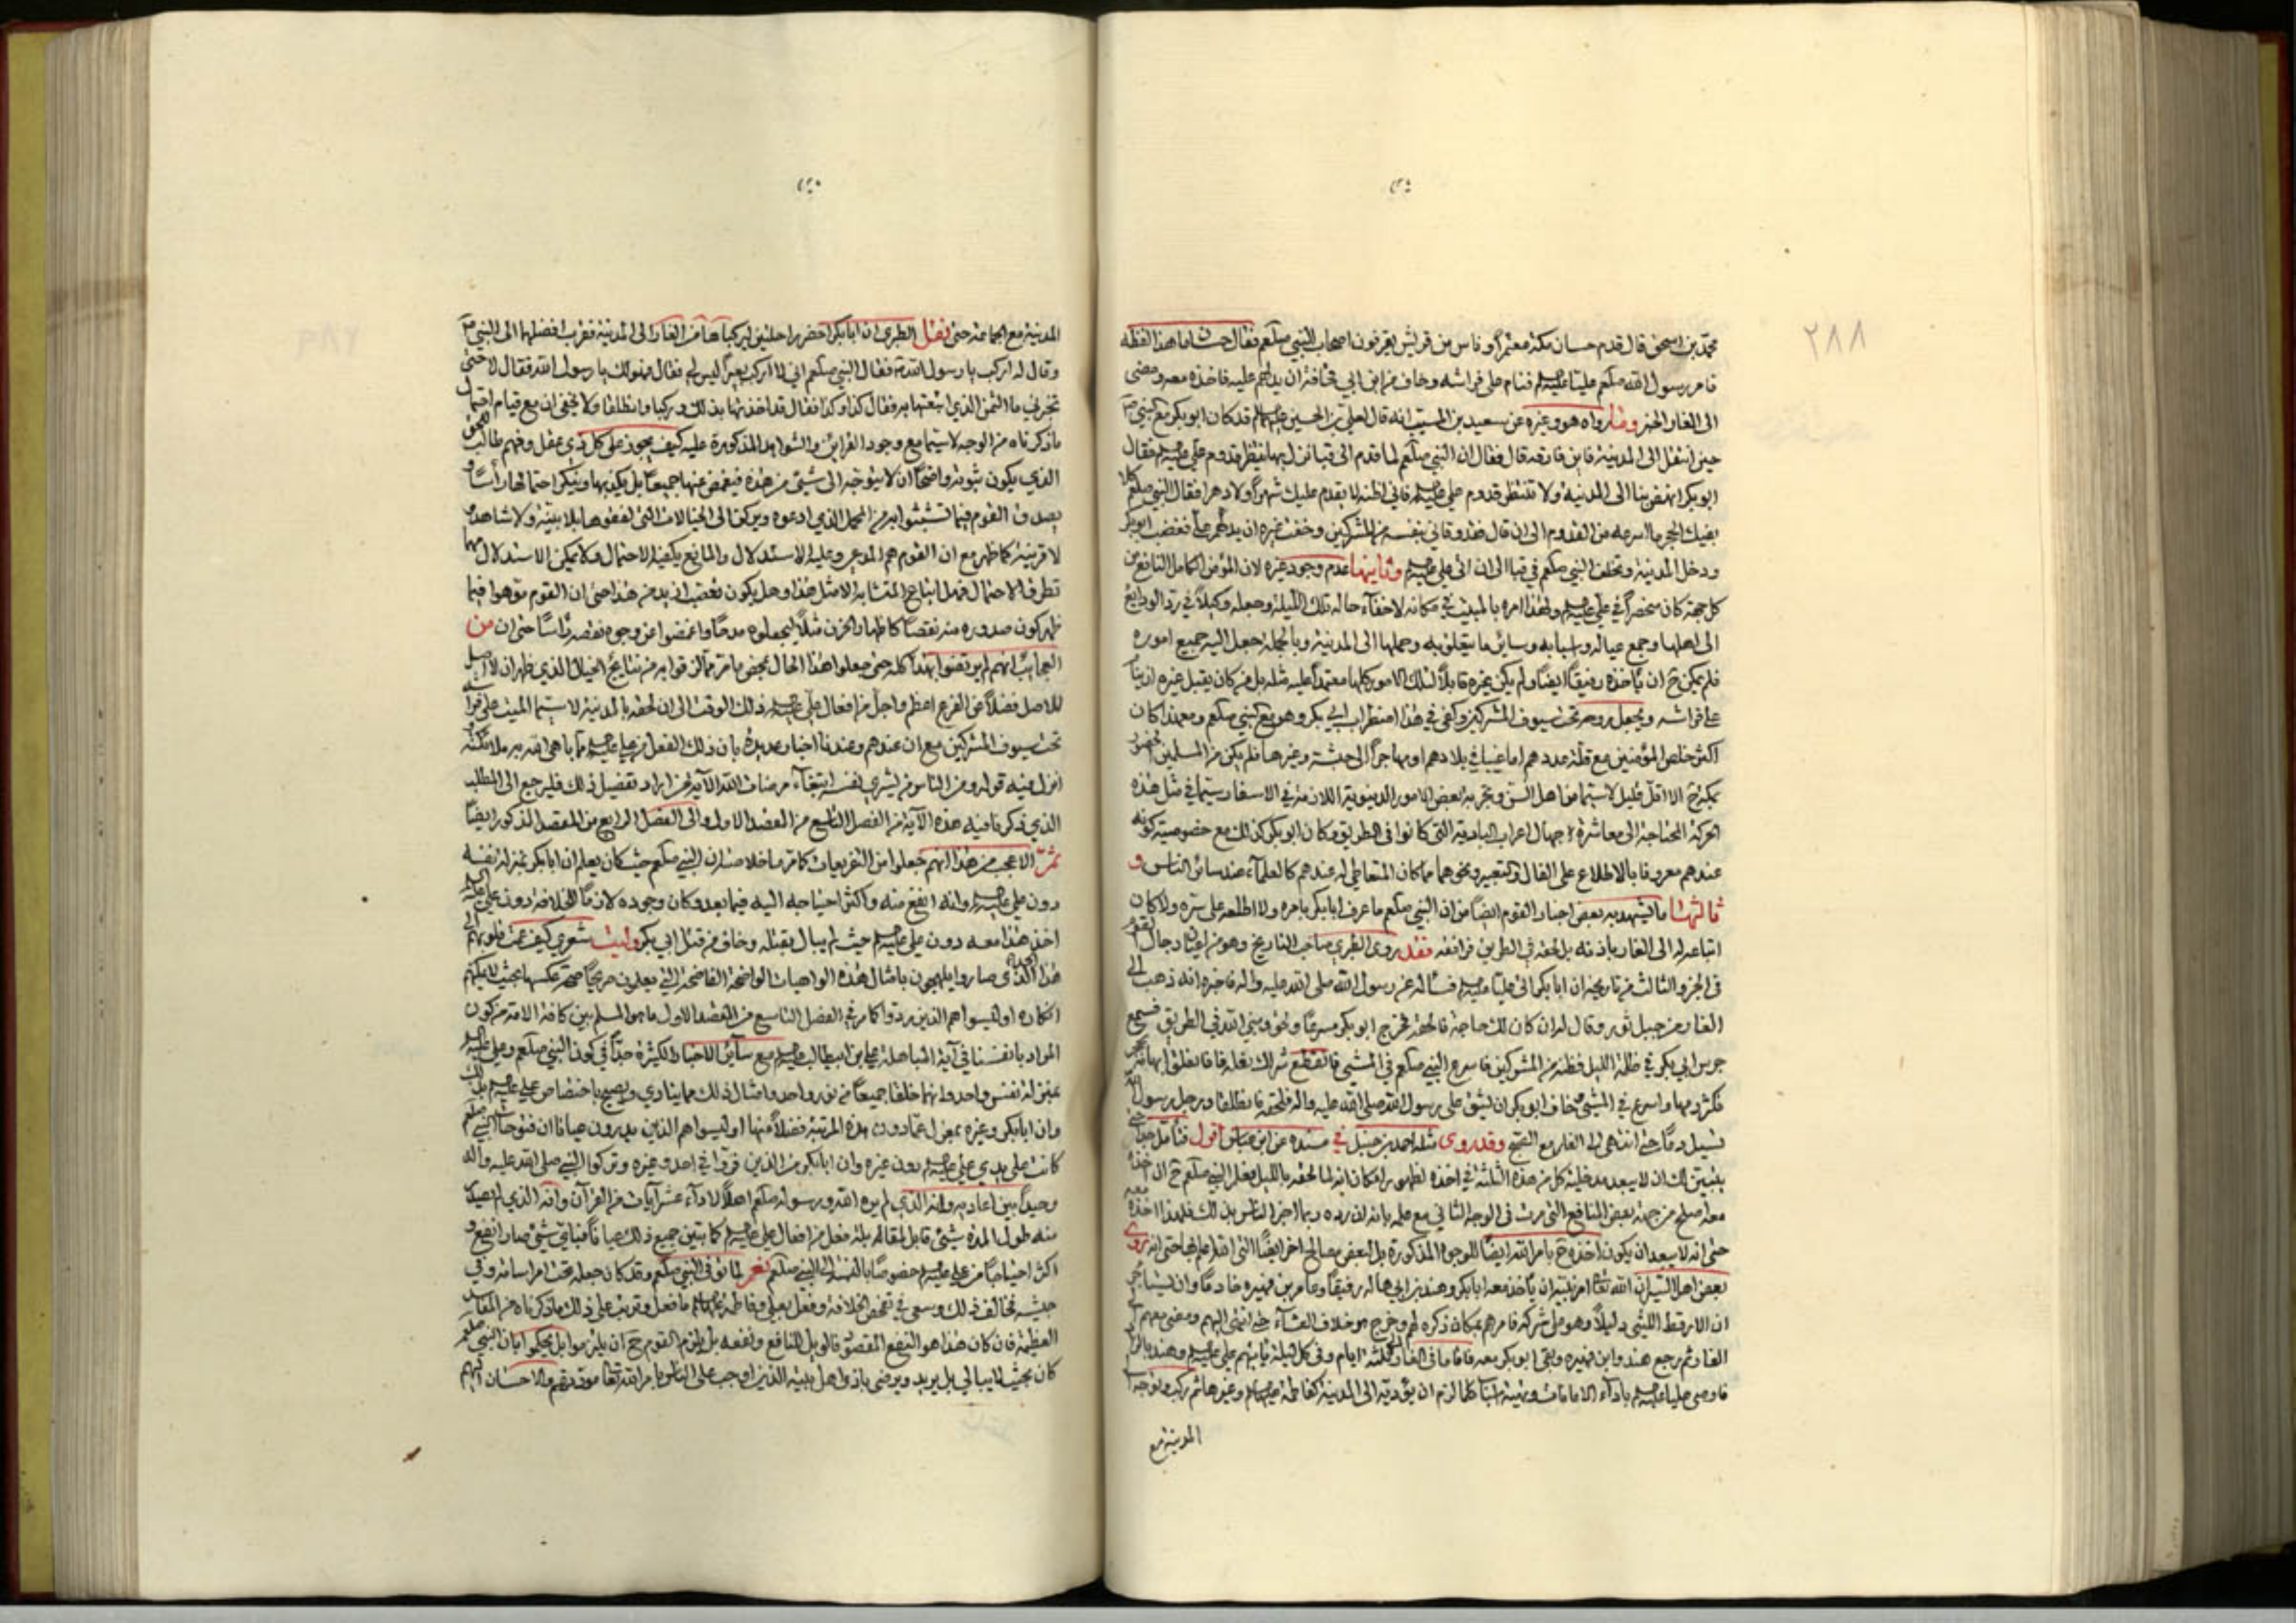 ٢٨٨
محمد بن اسحق قال قدم حسان مكة معتمرا وناس من قريش يقرفون اصحاب النبي صلعم فقال حسان ما هذا لفظه
فامر رسول الله صلعم عليا فنام على فراشه وخاف من ابن ابي قحافة ان يدلهم عليه فاخذه معه ومضى
الى الغار الخبر ومنها رواه هو وغيره عن سعيد بن المسيب انه قال لعلي بن الحسين قد كان ابوبكر مع النبي
حين انتقل الى المدينة فاين فارقه قال فقال ان النبي صلعم لما قدم الى قبا نزل بها ينتظر قدوم علي فقال
ابوبكر انهض بنا الى المدينة ولا تنتظر قدوم علي فاني اظنه لا يقدم عليك شهرا ولا دهرا فقال النبي صلعم كلا
بفيك الحجر ما اسرعه من القدوم الى ان قال فقد وقاني بنفسه من المشركين وخفت غيره ان يدلهم علي فغضب ابوبكر
ودخل المدينة وتخلف النبي صلعم في قبا الى ان اتى علي وثانيها عدم وجود غيره لان المؤمن الكامل النافع من
كل جهة كان منحصرا في علي ولهذا امره بالمبيت في مكانه لاخفاء حاله تلك الليلة وجعله وكيلا في رد الودايع
الى اهلها وجمع عياله واسبابه وسائر ما يتعلق به وحملها الى المدينة وبالجملة جعل اليه جميع اموره
فلم يمكن ح ان ياخذه رفيقا ايضا ولم يكن غيره قابلا لتلك الامور كلها معتمدا عليه مثله بل من كان يقبل غيره ان يبات
على فراشه ويجعل روحه تحت سيوف المشركين وكفى في هذا اضطراب ابي بكر وهو مع النبي صلعم ومع هذا كان
اكثر خلص المؤمنين مع قلة عددهم اما غيبا في بلادهم او مهاجرا الى حبشة وغيرها فلم يكن من المسلمين بحضور
مكة ح الا اقل قليل لاسيما من اهل السن وتجربة بعض الامور الدنيوية اللازمة في الاسفار سيما في مثل هذه
الحركة المحتاجة الى معاشرة جهال اعراب البادية التي كانوا في الطريق وكان ابوبكر كذلك مع خصوصية كونه
عندهم معروفا بالاطلاع على الفال والتعبير ونحوهما مما كان المتعاطي له عندهم كالعلماء عند سائر الناس و
ثالثها ما يشهد به بعض اخبار القوم ايضا من ان النبي صلعم ما عرف ابابكر بامره ولا اطلعه على سره ولا كان
اتباعه له الى الغار باذنه بل لحقه في الطريق فرافقه فقد روى الطبري صاحب التاريخ وهو من اعيان رجال القوم
في الجزو الثالث من تاريخه ان ابابكر اتى عليا فسأله عن رسول الله صلى الله عليه واله فاخبره انه ذهب الى
الغار من جبل ثور وقال له ان كان لك حاجة فالحقه فخرج ابوبكر مسرعا ولحق نبي الله في الطريق فسمع
جرس ابي بكر في ظلمة الليل فظنه من المشركين فاسرع النبي صلعم في المشي فانقطع شراك نعله فانفلق ابهامه بحجر
فكثر دمها واسرع في المشي فخاف ابوبكر ان يشق على رسول الله صلى الله عليه واله فلحقه فانطلقا ورجل رسول الله
تسيل دما حتى انتهى الى الغار مع الصبح وقد روى مثله احمد بن حنبل في مسنده عن ابن عباس اقول فتأمل جيدا حتى
يتبين لك ان لا يبعد مدخلية كل من هذه الثلثة في اخذه لظهور امكان انه لما لحقه بالليل فعلم النبي صلعم ح ان اخذه
معه اصلح من جهة بعض المنافع التي مرت في الوجه الثاني مع علمه بانه ان رده ربما اخبر الناس بذلك فلهذا اخذه معه
حتى انه لا يبعد ان يكون اخذه ح بامر الله ايضا للوجوه المذكورة بل لبعض مصالح اخر ايضا التي الله اعلم بها حتى انه روى
بعض اهل السير ان الله تعالى امر نبيه ان ياخذ معه ابابكر وهند بن ابي هالة رفيقا وعامر بن فهيرة خادما وان يستاجر
ابن الارقط الليثي دليلا وهو على شركه فامرهم بمكان ذكره لهم وخرج هو خلاف العشاء حتى انتهى اليهم ومضى معهم الى
الغار ثم رجع هند وابن فهيرة وبقي ابوبكر معه فاقاما في الغار ثلثة ايام وفي كل ليلة ياتيهم علي وهند بالزاد
فاوصى عليا باداء الامانات وتهيئة اسباب كلما لزم ان يؤديه الى المدينة كفاطمة وغيرها ثم ركب وتوجه الى
المدينة مع
المدينة مع الجماعة حتى نقل الطبري ان ابابكر احضر راحلتين ليركباهما من الغار الى المدينة فقرب افضلهما الى النبي
وقال له اركب يا رسول الله فقال النبي صلعم اني لا اركب بعيرا ليس لي فقال فهو لك يا رسول الله فقال لا حتى
تخبرني ما الثمن الذي ابتعتها به فقال كذا وكذا فقال قد اخذتها بذلك فركبا وانطلقا ولا يخفى ان مع قيام احتمال
ما ذكرناه من الوجه لاسيما مع وجود القراين والشواهد المذكورة عليه كيف يجوز على كل ذي عقل وفهم طالب للحق
الذي يكون ثبوته واضحا ان لا يتوجه الى شيئ من هذه فيغمض عنها جميعا بل يكذبها وينكر احتمالها راسا و
يصدق القوم فيما تشبثوا به من المحمل الذي ادعوه ويركن الى الخيالات التي لفقوها بلا بينة ولا شاهد و
لا قرينة كما ظهر مع ان القوم هم المدعي وعليه الاستدلال والمانع يكفيه الاحتمال ولا يمكن الاستدلال مهما
تطرق الاحتمال فهل اتباع المتشابه الا مثل هذا وهل يكون تعصب ازيد من هذا حتى ان القوم توهوا فيما
ظهر كون صدوره منه نقصا كاظهار الحزن مثلا ليجعلوه مدحا واغمضوا عن وجوه نقصه راسا حتى ان من
العجايب انهم لم يرتضوا بهذا كله حتى جعلوا هذا الحال بمحض ما مر مما لزقوا به من نتايج الخيال الذي ظهر ان لا اصل
للاصل فضلا عن الفرع اعظم واجل من افعال علي ذلك الوقت الى ان لحقه بالمدينة لاسيما المبيت على فراشه
تحت سيوف المشركين مع ان عندهم وعندنا اخبار عديدة بان ذلك الفعل من علي مما باهى الله به ملائكته و
انزل فيه قوله ومن الناس من يشري نفسه ابتغاء مرضات الله الاية فمن اراد تفصيل ذلك فليرجع الى المطلب
الذي ذكرنا فيه هذه الآية من الفصل التاسع من المقصد الاول والى الفصل الرابع من المقصد المذكور ايضا
ثم الاعجب من هذا انهم جعلوا من التفريعات كما مر ما خلاصته ان النبي صلعم حيث كان يعلم ان ابابكر بمنزلة نفسه
دون علي وانه انفع منه واكثر احتياجه اليه فيما بعد وكان وجوده لازما للخلافة دون علي
اخذ هذا معه دون علي حيث لم يبال بقتله وخاف من قتل ابي بكر وليت شعري كيف عمت قلوبهم الى
هذا الحد الذي صاروا يلهجون بامثال هذه الواهيات الواضحة الفاضحة التي يعلمون صريحا صحة عكسها بحيث لا يمكنهم
انكاره اوليسوا هم الذين رووا كما مر في الفصل التاسع من المقصد الاول ما هو المسلم بين كافة الامة من كون
المراد بانفسنا في آية المباهلة علي بن ابيطالب مع سائر الاخبار الكثيرة جدا في كون النبي صلعم وعلي
بمنزلة نفس واحد وانهما خلقا جميعا من نور واحد وامثال ذلك مما ينادي ويصيح باختصاص علي بذلك
وان ابابكر وغيره بمعزل عما دون هذه المرتبة فضلا عنها اوليسوا هم الذين يدرون عيانا ان فتوحات النبي صلعم
كانت على يدي علي دون غيره وان ابابكر من الذين فروا في احد وغيره وتركوا النبي صلى الله عليه وآله
وحيدا بين اعاديه وانه الذي لم يره الله ورسوله صلعم اهلا لاداء عشر آيات من القرآن وانه الذي لم يصدر
منه طول المدة شيئ قابل المقاله بلة فعل من افعال علي كما تبين جميع ذلك عيانا فباي شيئ صار انفع و
اكثر احتياجا من علي خصوصا بالنسبة الى النبي صلعم نعم لما توفى النبي صلعم وقد كان جعله تحت امر اسامة وفي
جيشه تخالف ذلك وسعى في تقمص الخلافة وفعل بعلي وفاطمة ما فعل وترتب على ذلك ما ذكرناه من المفاسد
العظيمة فان كان هذا هو النفع المقصود فالويل للنافع ونفعه بل يلزم القوم ح ان يلتزموا بل يحكموا بان النبي صلعم
كان بحيث لا يبالي بل يريد ويرضى باذى اهل بيته الذين اوجب على الناس بامر الله تعالى مودتهم والاحسان اليهم